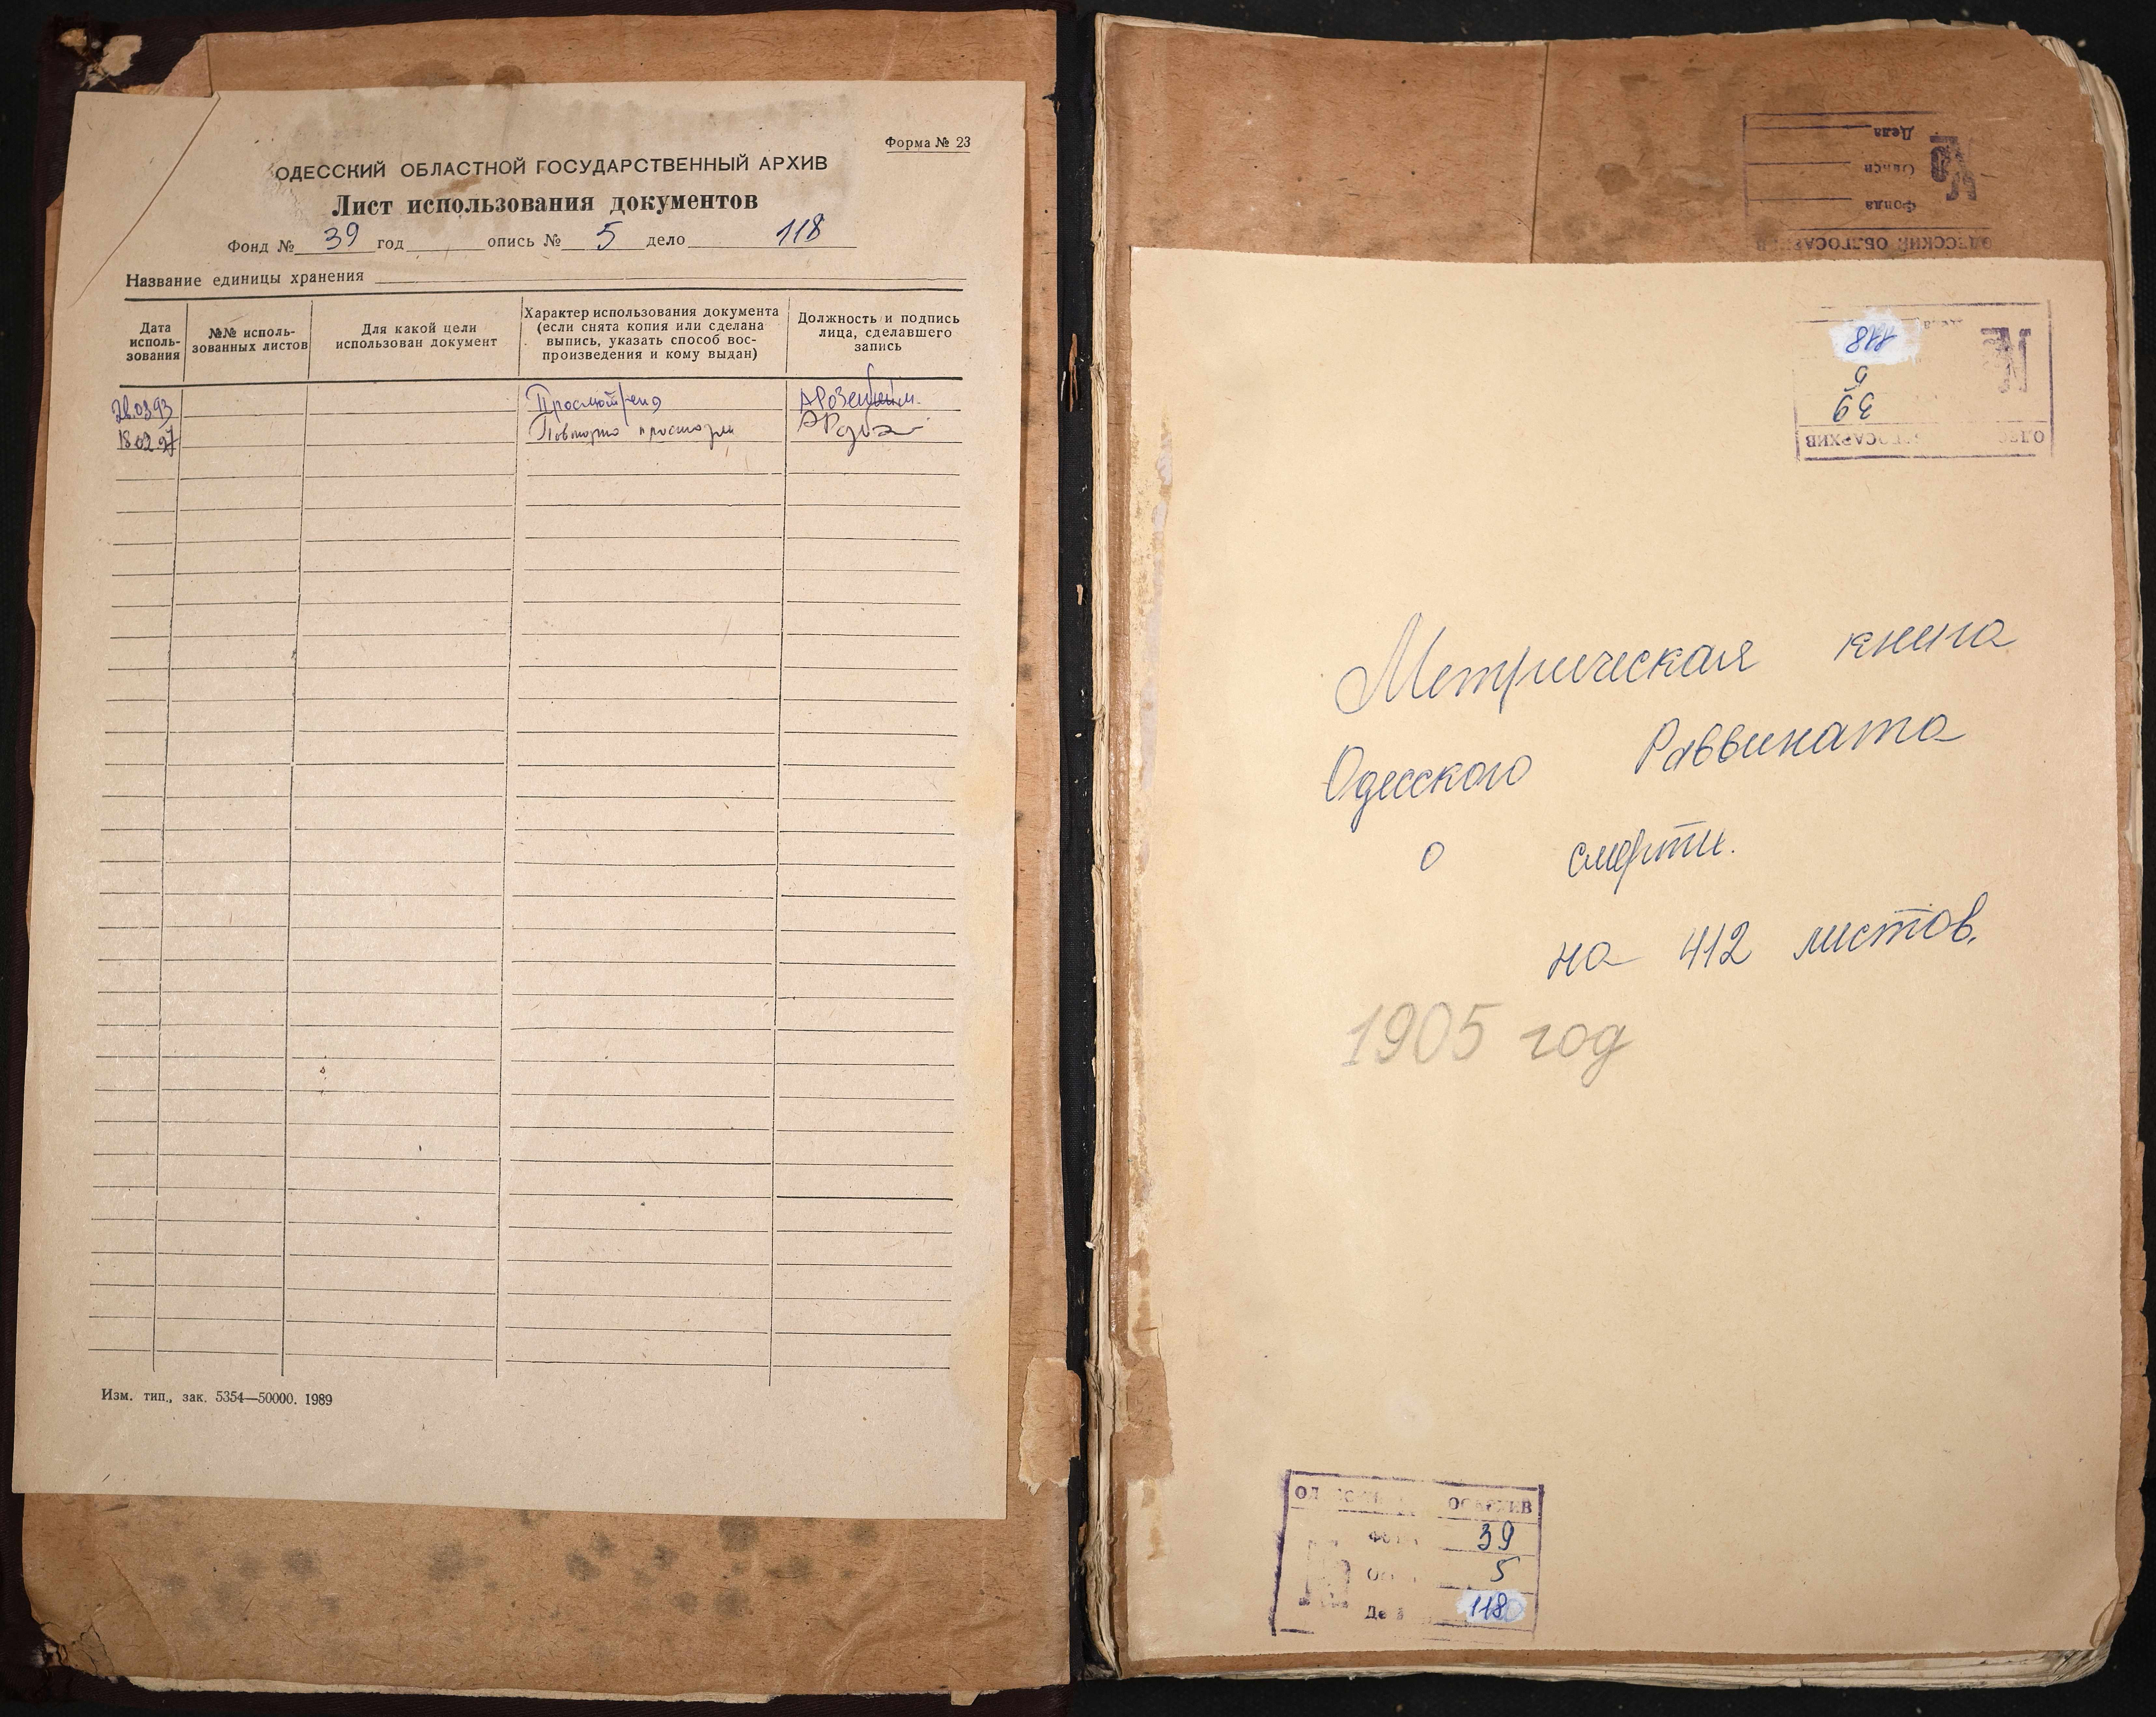 Форма № 23
ОДЕССКИЙ ОБЛАСТНОЙ ГОСУДАРСТВЕННЫЙ АРХИВ
Лист использования документов
Фонд № 39 год опись № 5 дело 118
Название единицы хранения
Дата исполь-
зования
№№ исполь-
зованных листов
Для какой цели
использован документ
Характер использования документа
(если снята копия или сделана
выпись, указать способ вос-
произведения и кому выдан)
Должность и подпись
лица, сделавшего
запись
28.03.93 Просмотрено
18.02.97 Повторно
Изм. тип., зак. 5354—50000. 1989
ОДЕССКИЙ ОБЛГОСАРХИВ
Фонда
Описи
Дела
39
5
118
Метрическая книга
Одесского Раввината
о смерти.
на 412 листов.
1905 год
39
5
118